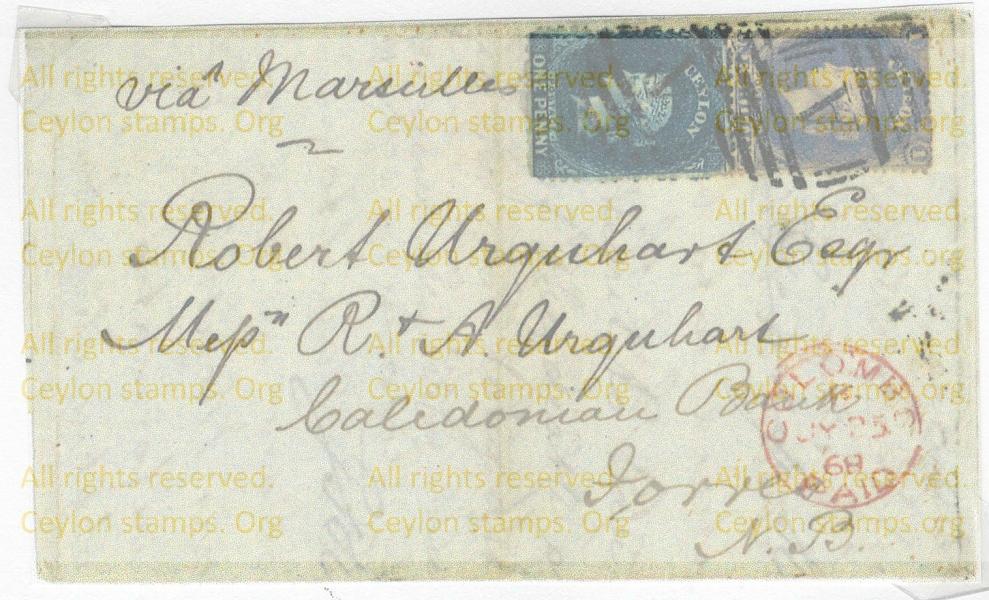 viâ Marseilles
ONE PENNY
CEYLON
Robert Urquhart Esqr
Messrs R. & A. Urquhart
Caledonian Bank
Forres
N. B.
COLOMBO
JY
68
PAID
All rights reserved. All rights reserved. All rights reserved.
Ceylon stamps. Org Ceylon stamps. Org Ceylon stamps. Org
All rights reserved. All rights reserved. All rights reserved.
Ceylon stamps. Org Ceylon stamps. Org Ceylon stamps. Org
All rights reserved. All rights reserved. All rights reserved.
Ceylon stamps. Org Ceylon stamps. Org Ceylon stamps. Org
All rights reserved. All rights reserved. All rights reserved.
Ceylon stamps. Org Ceylon stamps. Org Ceylon stamps. Org